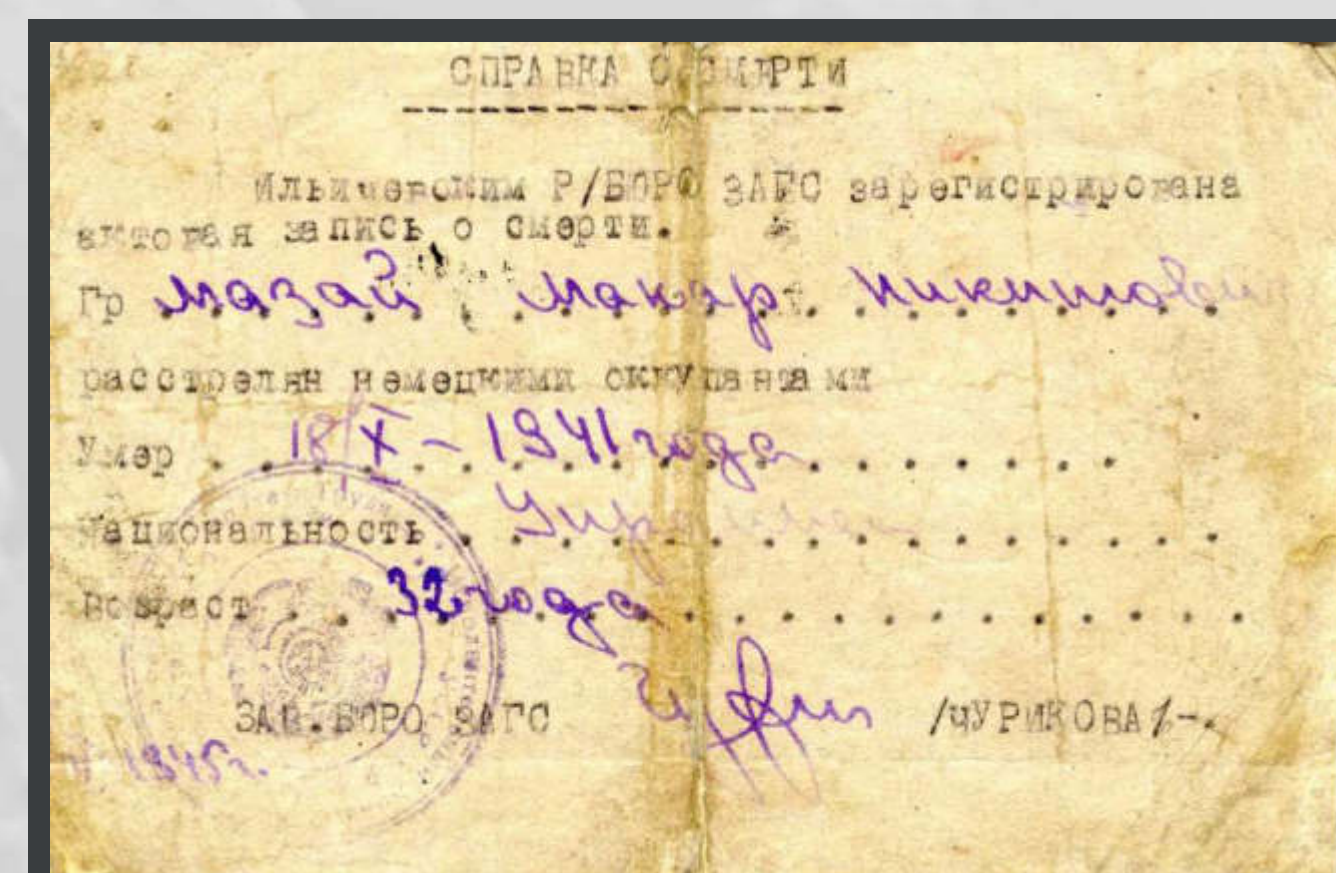 СПРАВКА О СМЕРТИ
Ильичевским Р/БЮРО ЗАГС зарегистрирована
актовая запись о смерти.
Гр Мазай Макар Никитович
расстрелян немецкими оккупантами
Умер 18/X - 1941 года
Национальность Украинец
Возраст 32 года
ЗАВ.БЮРО ЗАГС /ЧУРИКОВА/-
1945г.